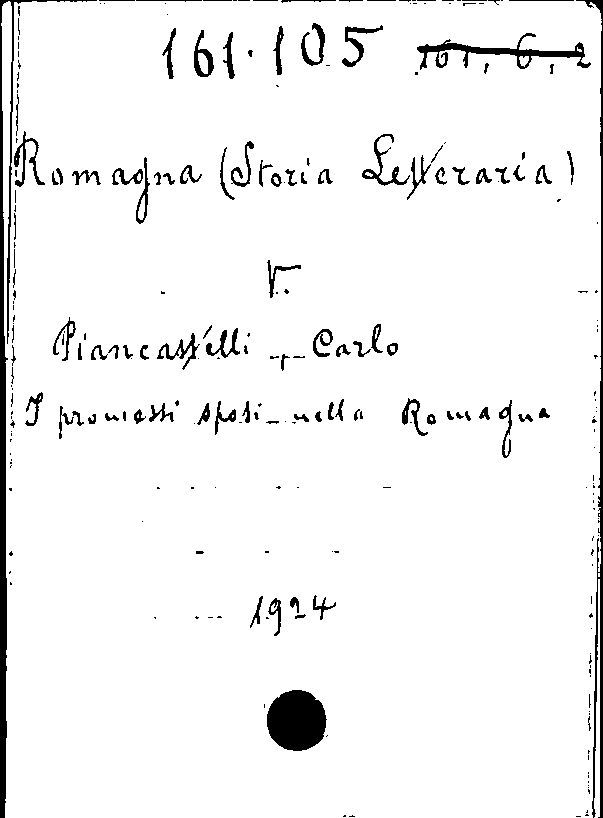 161.105 161.6.2
Romagna (Storia Letteraria)
V.
Piancastelli, Carlo
I promessi sposi nella Romagna
1924